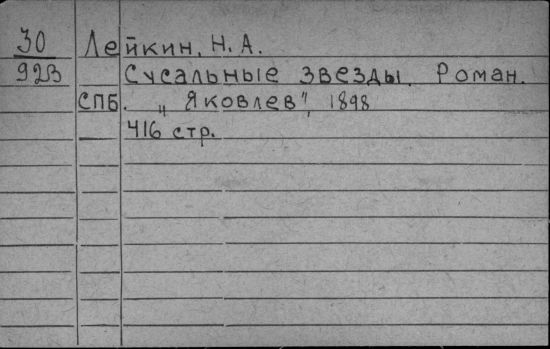 30 Лейкин, Н. А.
923 Сусальные звезды. Роман.
СПБ. „Яковлев", 1898
416 стр.